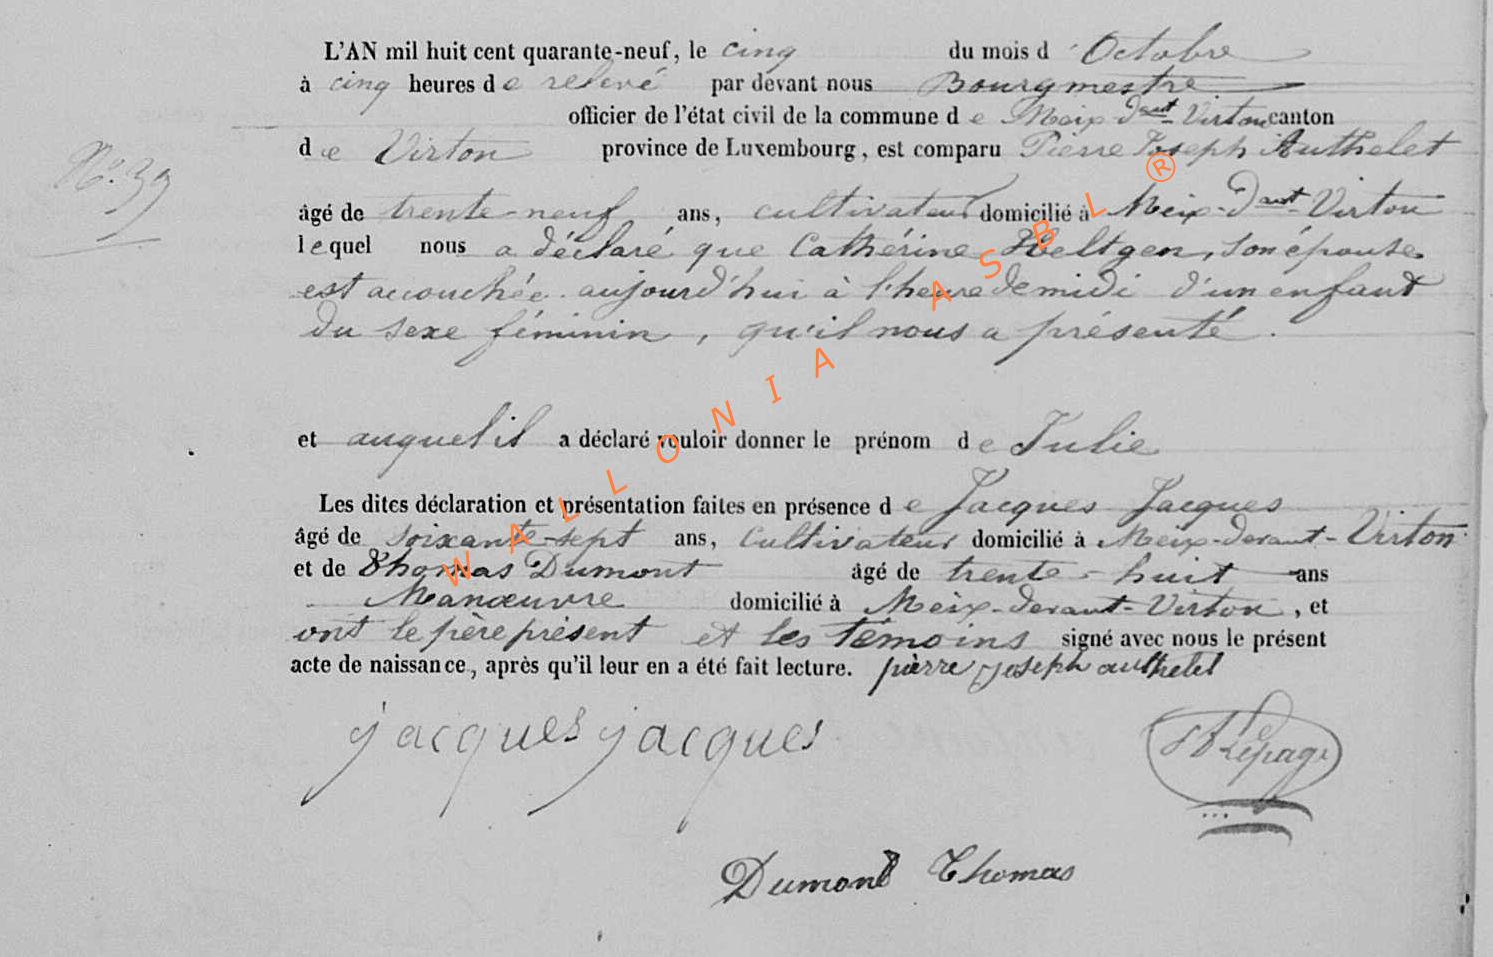 L'AN mil huit cent quarante-neuf, le cinq du mois d'Octobre
à cinq heures de relevé par devant nous Bourgmestre
officier de l'état civil de la commune de Meix-dvt-Virton canton
de Virton province de Luxembourg, est comparu Pierre Joseph Authelet
N° 39
âgé de trente-neuf ans, cultivateur domicilié à Meix-Dvant-Virton
lequel nous a déclaré que Cathérine Heltgen, son épouse
est accouchée aujourd'hui à l'heure de midi d'un enfant
du sexe féminin, qu'il nous a présenté.
et auquel il a déclaré vouloir donner le prénom de Julie
Les dites déclaration et présentation faites en présence de Jacques Jacques
âgé de soixante-sept ans, cultivateur domicilié à Meix-devant-Virton
et de Thomas Dumont âgé de trente-huit ans
Manœuvre domicilié à Meix-devant-Virton, et
ont le père présent et les témoins signé avec nous le présent
acte de naissance, après qu'il leur en a été fait lecture. pierre joseph authelet
jacques jacques
Lepage
Dumont Thomas
WALLONIA ASBL ®